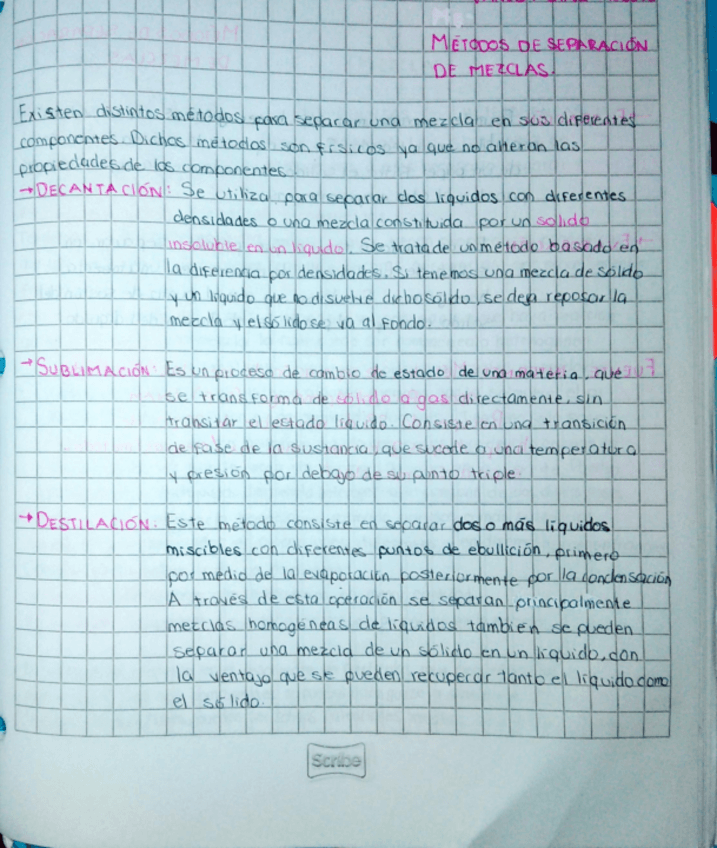 MÉTODOS DE SEPARACIÓN
DE MEZCLAS.
Existen distintos métodos para separar una mezcla en sus diferentes
componentes. Dichos métodos son físicos ya que no alteran las
propiedades de los componentes.
→DECANTACIÓN: Se utiliza para separar dos líquidos con diferentes
densidades o una mezcla constituida por un solido
insoluble en un liquido. Se trata de un método basado en
la diferencia por densidades. Si tenemos una mezcla de sólido
y un líquido que no disuelve dicho sólido, se deja reposar la
mezcla y el sólido se va al fondo.
→SUBLIMACIÓN: Es un proceso de cambio de estado de una materia, que
se transforma de sólido a gas directamente, sin
transitar el estado líquido. Consiste en una transición
de fase de la sustancia, que sucede a una temperatura
y presión por debajo de su punto triple.
→DESTILACIÓN: Este método consiste en separar dos o más líquidos
miscibles con diferentes puntos de ebullición, primero
por medio de la evaporación posteriormente por la condensación
A través de esta operación se separan principalmente
mezclas homogéneas de líquidos tambien se pueden
separar una mezcla de un sólido en un líquido, con
la ventaja que se pueden recuperar tanto el líquido como
el sólido.
Scribe